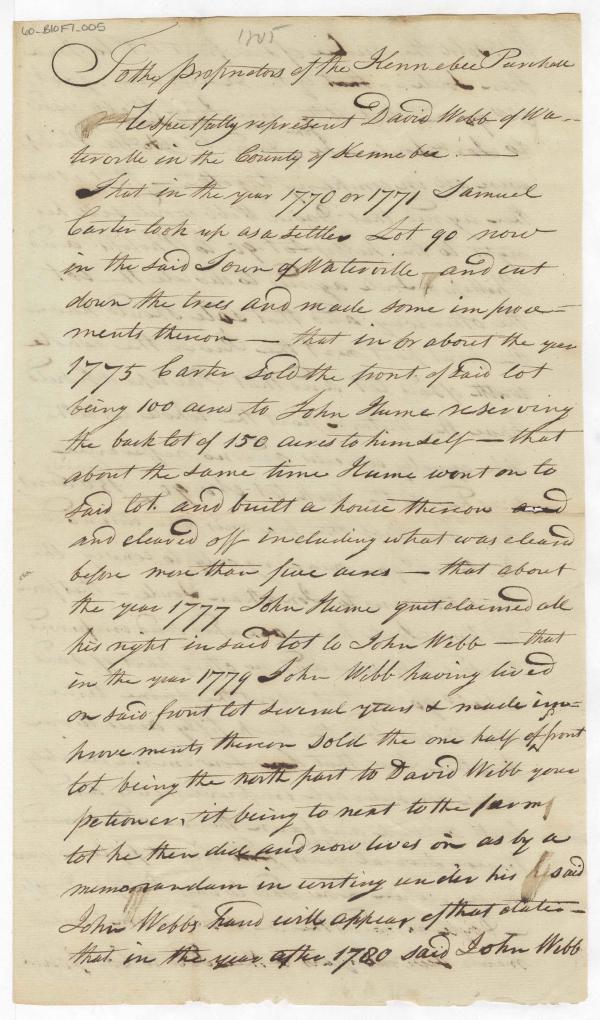 60-B10F7-005
1805
To the proprietors of the Kennebec Purchase
Respectfully represent David Webb of Wa-
terville in the County of Kennebec —
That in the year 1770 or 1771 Samuel
Carter took up as a settler Lot 90 now
in the said Town of Waterville and cut
down the trees and made some improve-
ments thereon — that in or about the year
1775 Carter sold the front of said lot
being 100 acres to John Hume reserving
the back lot of 150 acres to himself — that
about the same time Hume went on to
said lot and built a house thereon and
and cleared off including what was cleared
before more than five acres — that about
the year 1777 John Hume quit claimed all
his right in said lot to John Webb — that
in the year 1779 John Webb having lived
on said front lot several years & made im-
provements thereon sold the one half of front
lot being the north part to David Webb your
petioner, it being to next to the farm
lot he then did and now lives on as by a
memorandum in writing under his said
John Webbs hand will appear of that date —
that in the year after 1780 said John Webb